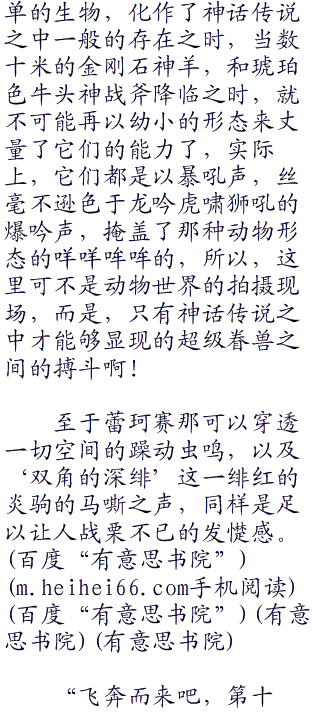 单的生物，化作了神话传说
之中一般的存在之时，当数
十米的金刚石神羊，和琥珀
色牛头神战斧降临之时，就
不可能再以幼小的形态来丈
量了它们的能力了，实际
上，它们都是以暴吼声，丝
毫不逊色于龙吟虎啸狮吼的
爆吟声，掩盖了那种动物形
态的咩咩哞哞的，所以，这
里可不是动物世界的拍摄现
场，而是，只有神话传说之
中才能够显现的超级眷兽之
间的搏斗啊！
至于蕾珂赛那可以穿透
一切空间的躁动虫鸣，以及
‘双角的深绯’这一绯红的
炎驹的马嘶之声，同样是足
以让人战栗不已的发憷感。
(百度“有意思书院”)
(m.heihei66.com手机阅读)
(百度“有意思书院”)(有意
思书院)(有意思书院)
“飞奔而来吧，第十